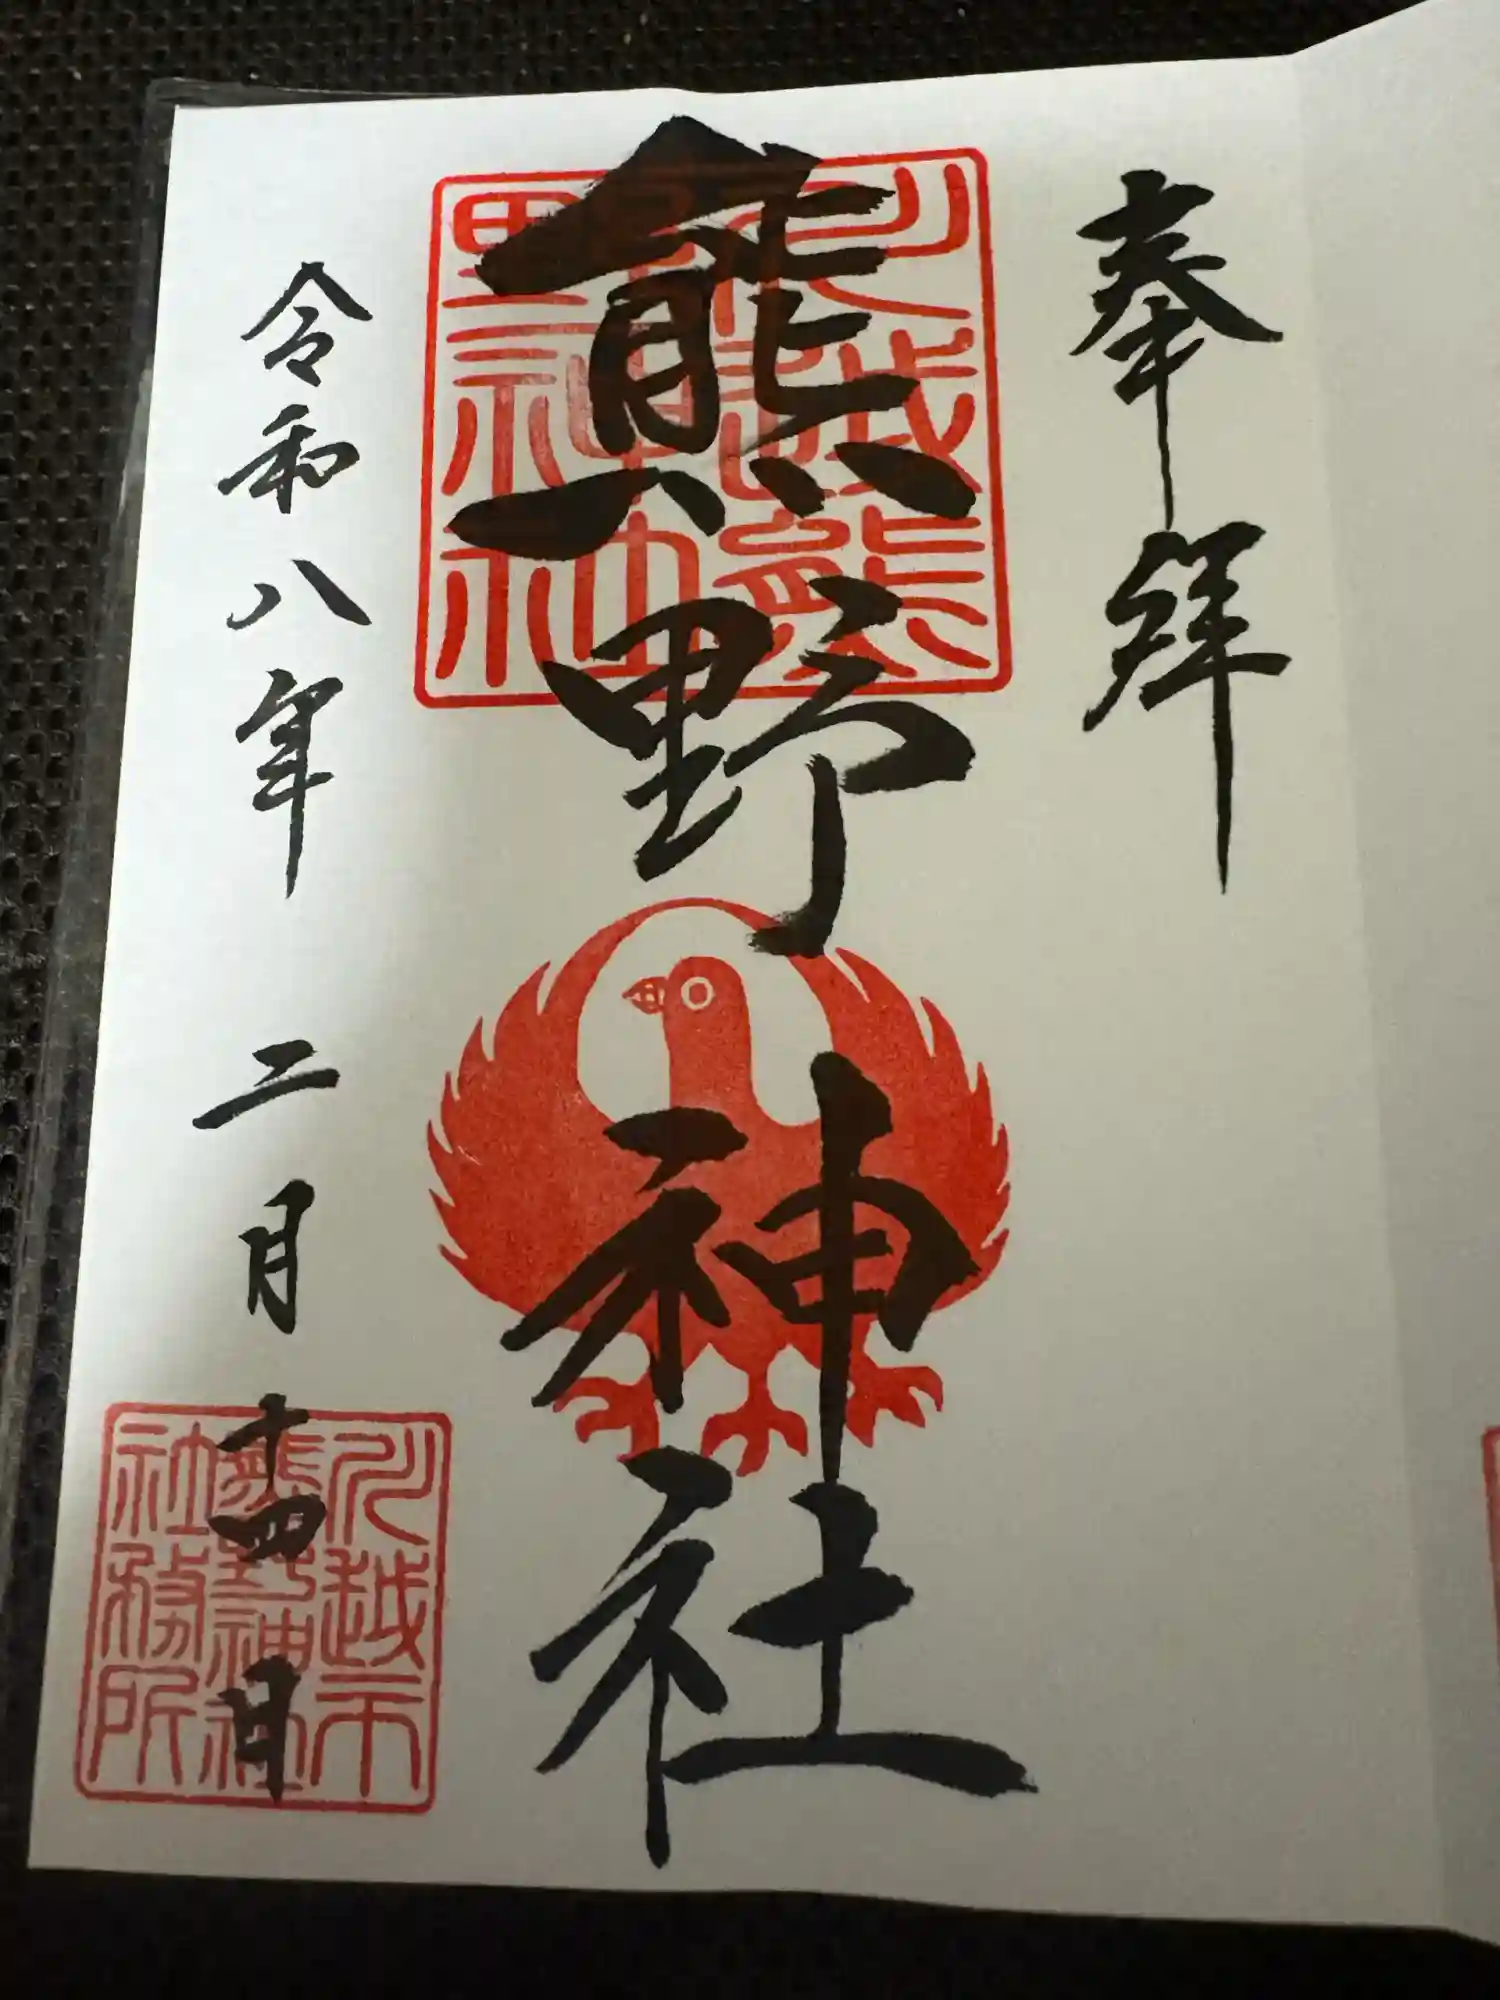 奉拝
熊野神社
川越熊野神社
令和八年 二月十四日
川越市熊野神社社務所